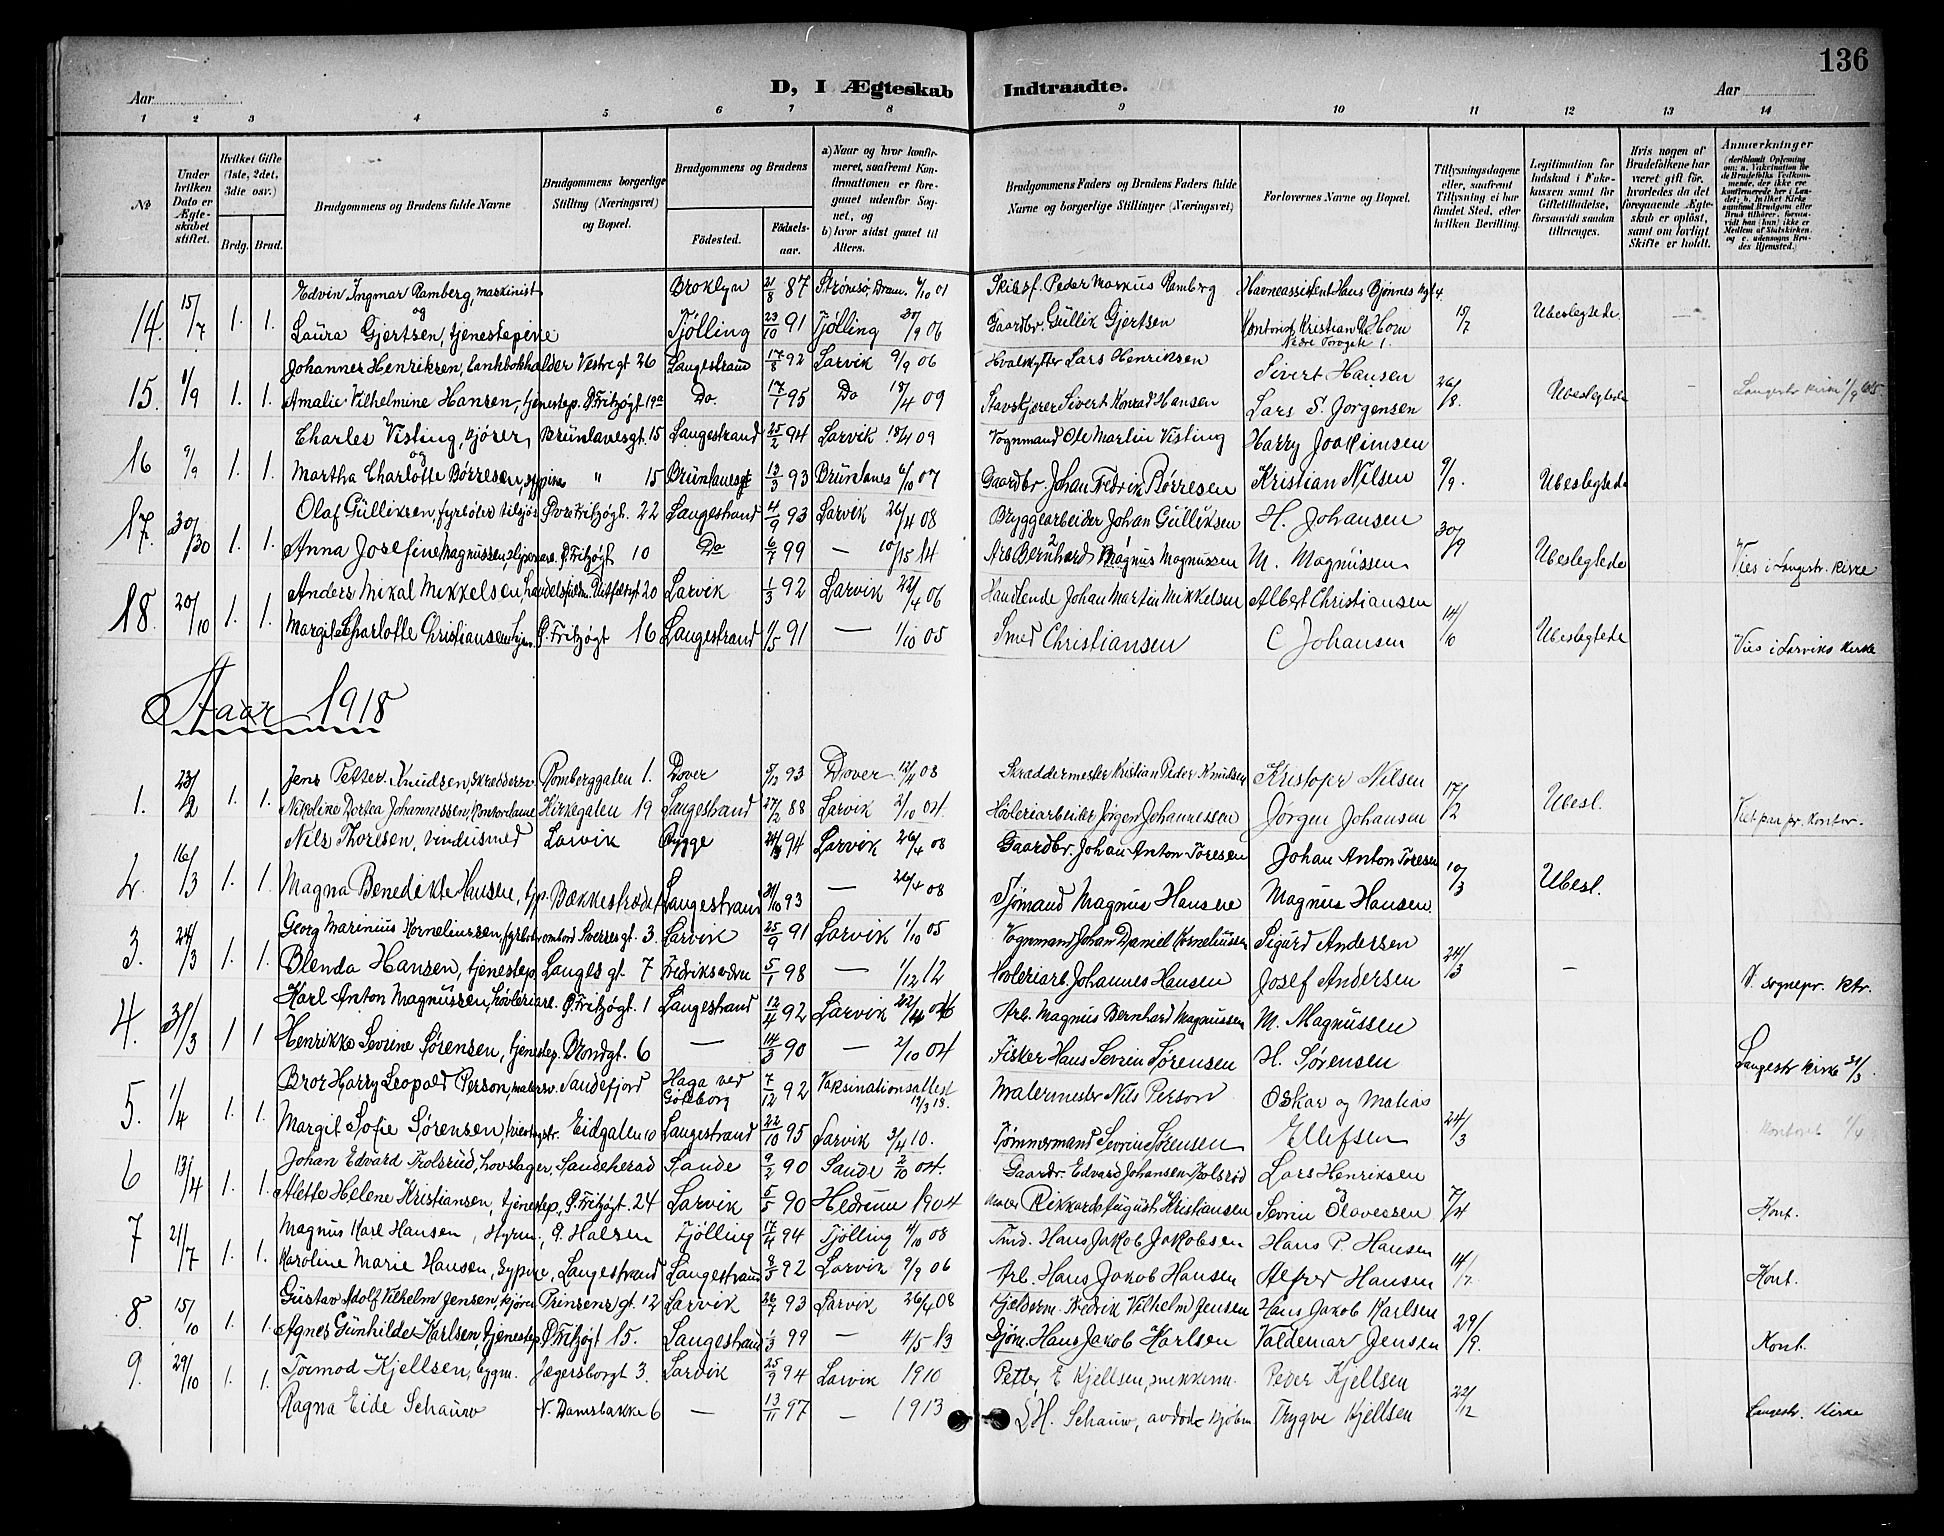 136
D, I Ægteskab Indtraadte.
Aar
Aar
1 2 3 4 5 6 7 8 9 10 11 12 13 14
No
Under hvilken Dato er Ægteskabet stiftet.
Hvilket Gifte (1ste, 2det, 3die osv.)
Brdg. Brud.
Brudgommens og Brudens fulde Navne
Brudgommens borgerlige Stilling (Næringsvei) og Bopæl.
Brudgommens og Brudens
Fødested.
Fødselsaar.
a) Naar og hvor konfirmeret, saafremt Konfirmationen er foregaaet udenfor Sognet, og
b) hvor sidst gaaet til Alters.
Brudgommens Faders og Brudens Faders fulde Navne og borgerlige Stillinger (Næringsvei)
Forlovernes Navne og Bopæl.
Tillysningsdagene eller, saafremt Tillysning ei har fundet Sted, efter hvilken Bevilling.
Legitimation for Indskud i Fakekassen samt for Giftetilladelse, forsaavidt saadan tiltrænges.
Hvis nogen af Brudefolkene har været gift før, hvorledes da det foregaaende Ægteskab er opløst, samt om lovligt Skifte er holdt.
Anmærkninger
14. 15/7 1. 1. Edvin Ingmar Ramberg, maskinist Broklyn 21/8 87 Strømsø, Dram. 6/10 01 Skibsf. Peder Markus Ramberg Havneassistent Hans Bjønnes 15/7 Ubeslegtede
og
Laura Gjertsen, tjenestepike Tjølling 23/10 91 Tjølling 30/9 06 Gaardbr. Gullik Gjertsen Kontorist Kristian Hom
Nedre Torvgate 1.
15. 1/9 1. 1. Johannes Henriksen, bankbokholder Vestregt 26 Langestrand 17/8 92 Larvik 9/9 06 Hvalskytter Lars Henriksen Sivert Hansen 26/8. Ubeslegtede
Amalie Vilhelmine Hansen, tjenestep. Ø. Fritzøgt. 19a Do. 17/7 95 Do 18/4 09 Stavskjører Sivert Konrad Hansen Lars S. Jorgensen Langestr kirke 1/9
16 9/9 1. 1. Charles Visting, kjører, Brunlanesgt. 15 Langestrand 25/2 94 Larvik 18/4 09 Vognmand Ole Martin Visting Harry Joakimsen 9/9. Ubeslegtede
og
Martha Charlotte Børresen, sypike " 15 Brunlanes 13/3 93 Brunlanes 6/10 07 Gaardbr. Johan Fredrik Børresen Kristian Nilsen
17. 30/30 1. 1. Olaf Gulliksen, fyrbøter tilsjøs Øvre Fritzøgt. 22 Langestrand 4/9 93 Larvik 26/4 08 Bryggearbeider Johan Gulliksen H. Johansen 30/9 Ubeslegtede
Anna Josefine Magnussen, Ø. Fritzøgt 10 Do 6/7 99 — 14 Arb. Bernhard Magnus Magnussen M. Magnussen Vies i Langestr. kirke
18. 20/10 1. 1. Anders Mikal Mikkelsen, 20 Larvik 1/3 92 Larvik 22/4 06 Handlende Johan Martin Mikkelsen Albert Christiansen 14/10 Ubeslegtede
Margit Charlotte Christiansen, Ø. Fritzøgt 16 Langestrand 4/5 91 — 1/10 05 Smed Christiansen C Johansen Vies i Larviks Kirke
Aar 1918
1. 23/2 1. 1. Jens Petter Knudsen, skreddersv. Romberggaten 1. Dover 5/12 93 Dover 12/4 08 Skræddermester Kristian Peder Knudsen Kristofer Nilsen 17/2 Ubesl.
Nikoline Dortea Johannessen, kontordame Kirkegaten 19 Langestrand 27/2 88 Larvik 2/10 04. Høvleriarbeider Jørgen Johannessen Jørgen Johansen Viet paa pr. kontor.
2. 16/3 1. 1. Nils Thoresen, Larvik Rygge 94 Larvik 26/4 08 Gaardbr. Johan Anton Toresen Johan Anton Toresen 10/3 Ubesl.
Magna Benedikte Hansen, tjp. Bækkestrædet Langestrand 31/10 93 — 26/4 08 Sjømand Magnus Hansen Magnus Hansen.
3. 24/3 1. 1. Georg Marinius Korneliussen, fyrbøt. ombord Sverresgt. 3. Larvik 25/9 91 Larvik 1/10 05 Vognmand Johan Daniel Korneliussen Sigurd Andersen 24/3 —
Blenda Hansen, tjenestep Langes gt. 7 Fredriksværn 5/1 98 — 1/12 12 Høvleriarb. Johannes Hansen Josef Andersen V. sognepr. Ktr.
4. 31/3 1 1 Karl Anton Magnussen, høvleriarb. Ø. Fritzøgt. 1 Langestrand 12/4 92 Larvik 22/4 06 Arb. Magnus Bernhard Magnussen M. Magnussen
Henrikke Sevrine Sørensen, tjenestep. Brondgt. 6 — 14/3 90 — 2/10 04 Fisker Hans Sevrin Sørensen H. Sørensen Langestr kirke 31/3
5. 1/4 1. 1. Bror Harry Leopold Person, malersv. Sandefjord Haga ved Göteborg 7/12 92 Vaksinationsattest 19/3 18. Malermester Nils Person Oskar og Matias 24/3
Margit Sofie Sørensen, Eidgaten 10 Langestrand 22/10 95 Larvik 3/4 10. Tømmermand Sevrin Sørensen Ellefsen Kontoret 1/4
6 13/4 1. 1. Johan Edvard Trolsrud, hovslager, Sandeherad Sande 9/2 90 Sande 2/10 04. Gaardbr. Edvard Johansen Trolsrød Lars Henriksen 7/4
og
Alette Helene Kristiansen, tjenestep, Ø. Fritzøgt. 24 Larvik 5/5 90 Hedrum 1904 Maler Rikkard August Kristiansen Sevrin Olavessen Kont.
7 21/7 1. 1. Magnus Karl Hansen, Styrm., Ø. Halsen Tjølling 17/4 94 Tjølling 4/10 08 Tmd. Hans Jakob Jakobsen Hans P. Hansen 14/7.
Karoline Marie Hansen, Sypike, Langestrand Langestrand 92 Larvik 9/9 06 Arb. Hans Jakob Hansen Alfred Hansen Kont.
8. 15/10 1. 1. Gustav Adolf Vilhelm Jensen, kjører Prinsens gt. 12 Larvik 26/7 93 Larvik 26/4 08 Fredrik Vilhelm Jensen Hans Jakob Karlsen 29/9.
Agnes Gunhilde Karlsen, tjenestep. Ø Fritzøgt 15. Langestrand 1/3 99 — 4/5 13 Sjøm. Hans Jakob Karlsen Valdemar Jensen Kont.
9. 29/10 1. 1. Tormod Kjellsen, bygm. Jegersborgt 3. Larvik 25/9 94 Larvik 1910 Petter E Kjellsen, mekkem. Peder Kjellsen 22/12
Ragna Eide Schauw V. Damsbakke 6 — 13/11 97 — 1913 H. Schauw, avdøde kjøbm Trygve Kjellsen Langestr. Kirke